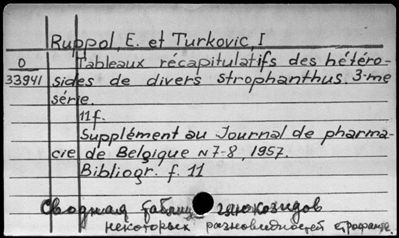 Ruppol, E. et Turkovic, I
O
33941
Tableaux récapitulatifs des hétéro-
sides de divers strophanthus. 3-me
série.
11f.
Supplément au Journal de pharma-
cie de Belgique N 7-8, 1957.
Bibliogr. f. 11
Сводная таблица глюкозидов
некоторых разновидностей строфанта